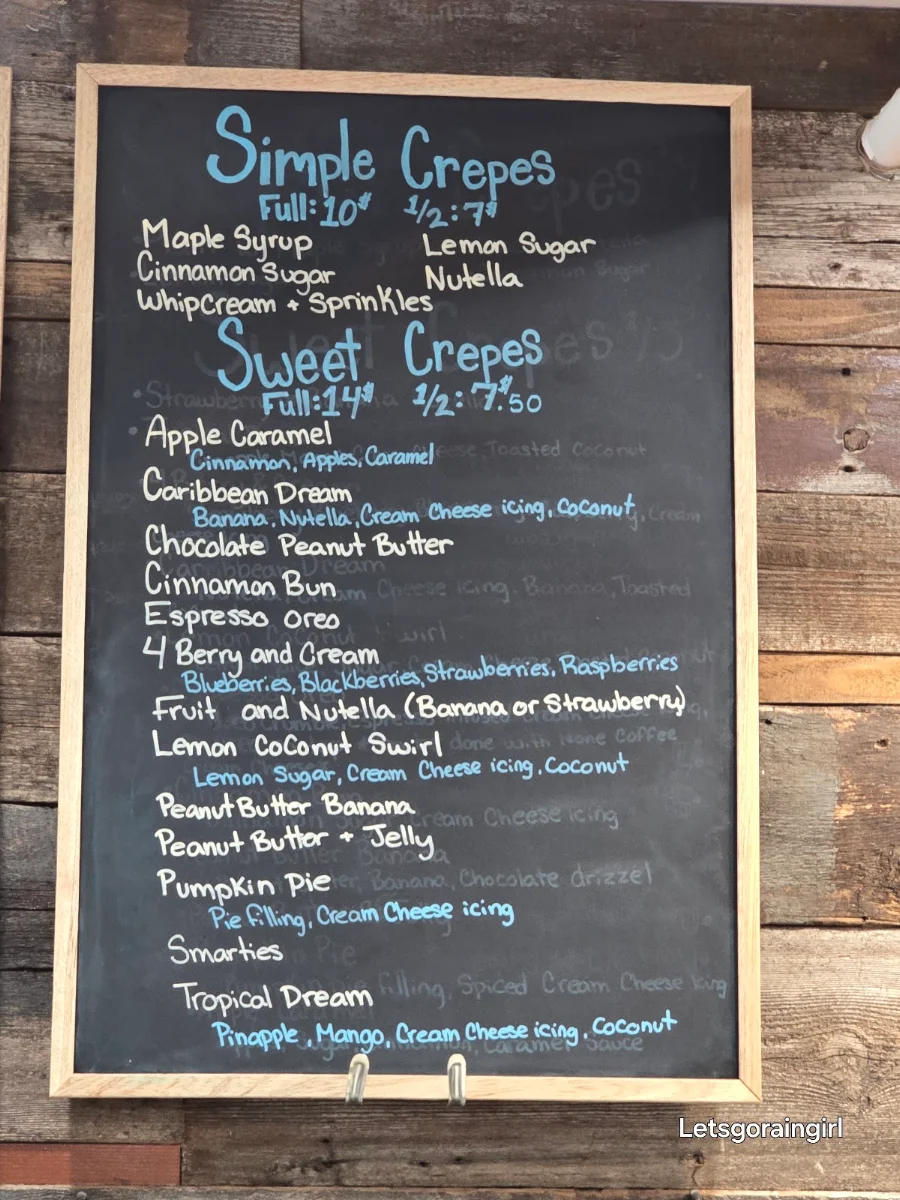 Simple Crepes
Full: 10$ 1/2: 7$
Maple Syrup Lemon Sugar
Cinnamon Sugar Nutella
Whipcream + Sprinkles
Sweet Crepes
Full: 14$ 1/2: 7$.50
Apple Caramel
Cinnamon, Apples, Caramel
Caribbean Dream
Banana, Nutella, Cream Cheese icing, Coconut
Chocolate Peanut Butter
Cinnamon Bun
Espresso oreo
4 Berry and Cream
Blueberries, Blackberries, Strawberries, Raspberries
Fruit and Nutella (Banana or Strawberry)
Lemon Coconut Swirl
Lemon Sugar, Cream Cheese icing, Coconut
Peanut Butter Banana
Peanut Butter + Jelly
Pumpkin Pie
Pie filling, Cream Cheese icing
Smarties
Tropical Dream
Pinapple, Mango, Cream Cheese icing, Coconut
Letsgoraingirl